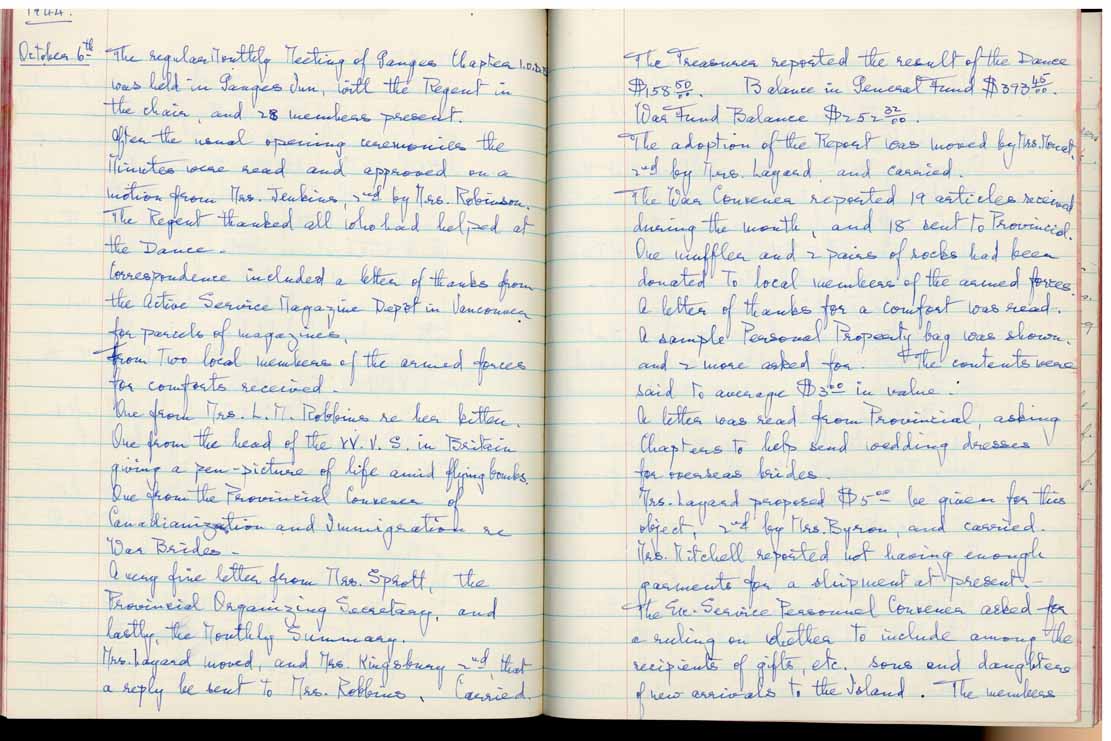 1944.
October 6th
The regular Monthly Meeting of Ganges Chapter I.O.D.E.
was held in Ganges Inn, with the Regent in
the chair, and 28 members present.
After the usual opening ceremonies the
Minutes were read and approved on a
motion from Mrs. Jenkins, 2nd by Mrs. Robinson.
The Regent thanked all who had helped at
the Dance.
Correspondence included a letter of thanks from
the Active Service Magazine Depot in Vancouver
for parcels of magazines.
From Two local members of the armed forces
for comforts received.
One from Mrs. L. M. Robbins re her kitten.
One from the head of the W.V.S. in Britain
giving a pen-picture of life amid flying bombs.
One from the Provincial Convener of
Canadianization and Immigration re
War Brides.
A very fine letter from Mrs. Sprott, the
Provincial Organizing Secretary, and
lastly, the Monthly Summary.
Mrs. Layard moved, and Mrs. Kingsbury 2nd, that
a reply be sent to Mrs. Robbins. Carried.
The Treasurer reported the result of the Dance
$158 50/00. Balance in General Fund $393 45/00.
War Fund Balance $252 32/00.
The adoption of the Report was moved by Mrs.
2nd by Mrs. Layard, and carried.
The War Convener reported 19 articles received
during the month, and 18 sent to Provincial.
One muffler and 2 pairs of socks had been
donated to local members of the armed forces.
A letter of thanks for a comfort was read.
A sample Personal Property bag was shown.
and 2 more asked for. The contents were
said to average $3 00 in value.
A letter was read from Provincial, asking
Chapters to help send wedding dresses
for overseas brides.
Mrs. Layard proposed $5 00 be given for this
object, 2nd by Mrs. Byron, and carried.
Mrs. Mitchell reported not having enough
garments for a shipment at present.
The Ex. Service Personnel Convener asked for
a ruling on whether to include among the
recipients of gifts, etc. sons and daughters
of new arrivals to the Island. The members